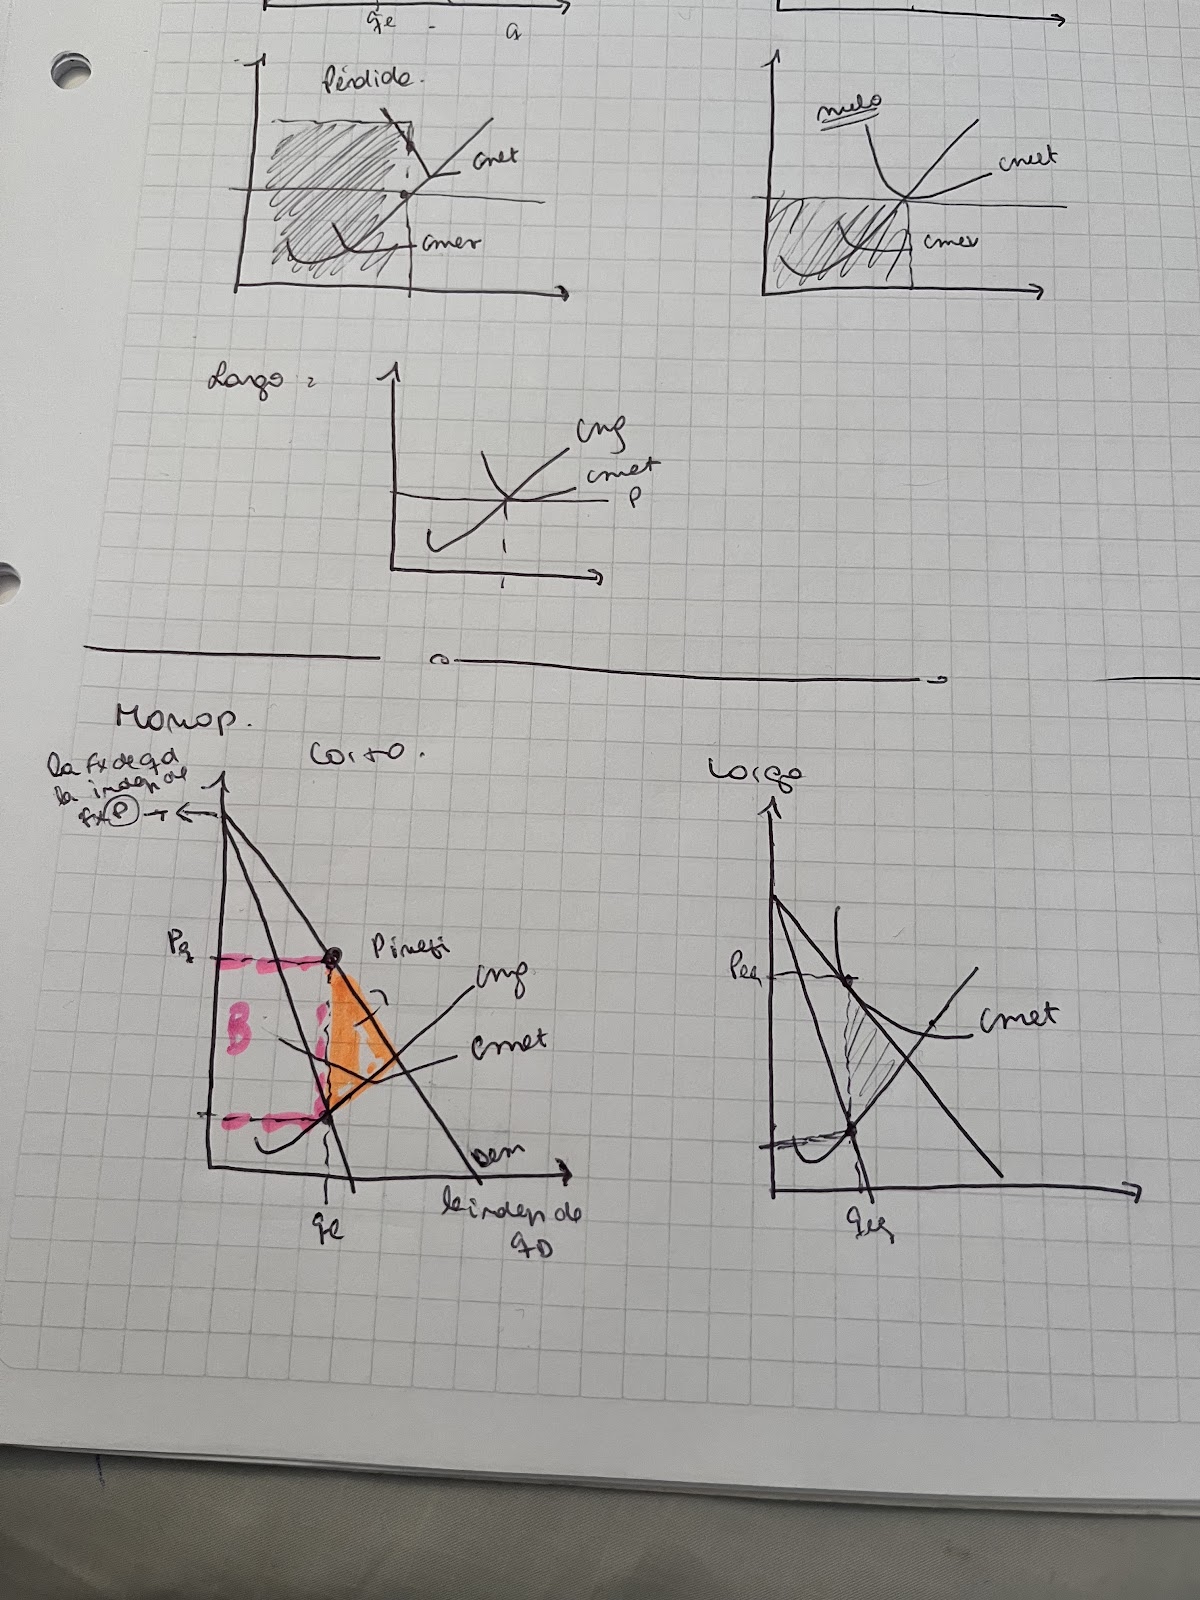 qe
q
Pérdida.
cmet
cmev
nulo
cmet
cmev
Largo:
cmg
cmet
P
Monop.
Corto.
la fx de qd
la indep de
fx P
Pq
Pinefi
B
cmg
cmet
Dem
la indep de
qD
qe
Largo
Peq
cmet
qeq